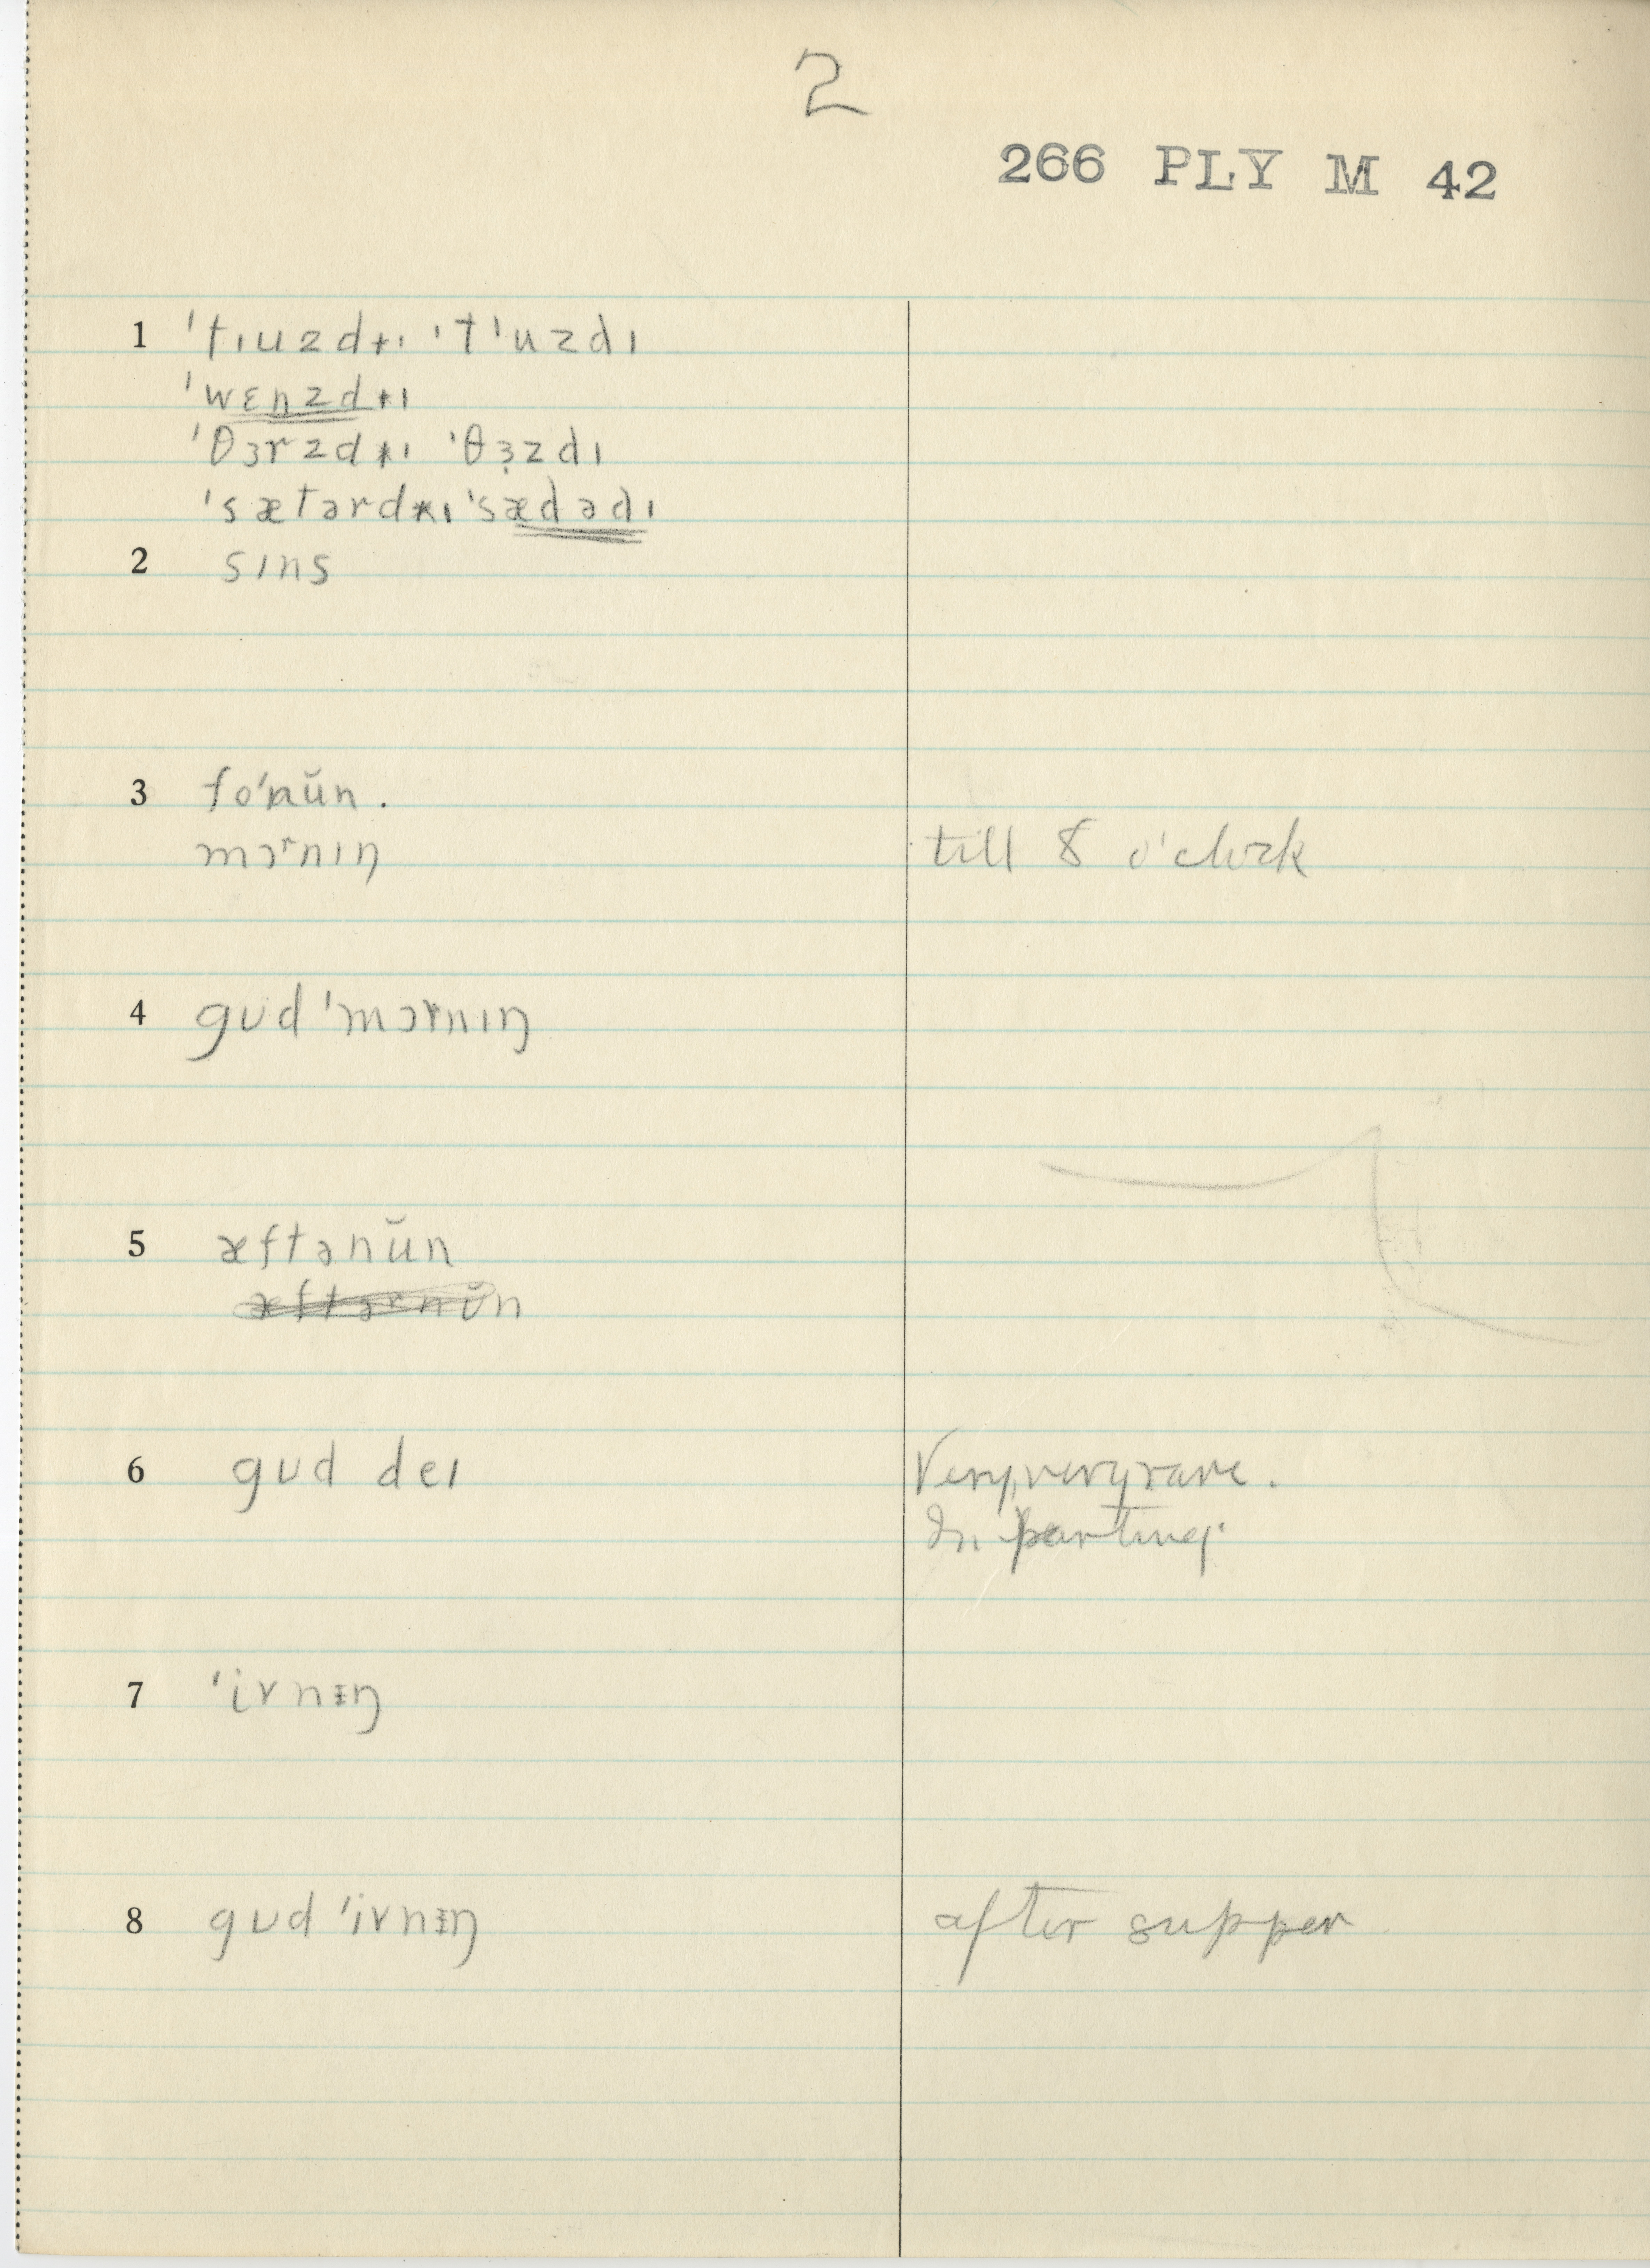 2
266 PLY M 42
1 ˈtɪuzdɪ ˈtˈuzdɪ
ˈwɛnzdɪ
ˈθɜrzdɪ ˈθɜ̣zdɪ
ˈsætərdɪ ˈsædədɪ
2 sɪns
3 foˈnŭn.
mɔʳnɪŋ till 8 o'clock
4 gʊd ˈmɔrnɪŋ
5 æftənŭn
æftərnŭn
6 gʊd deɪ Very, very rare.
In parting.
7 ˈivnɪŋ
8 gʊd ˈivnɪŋ after supper